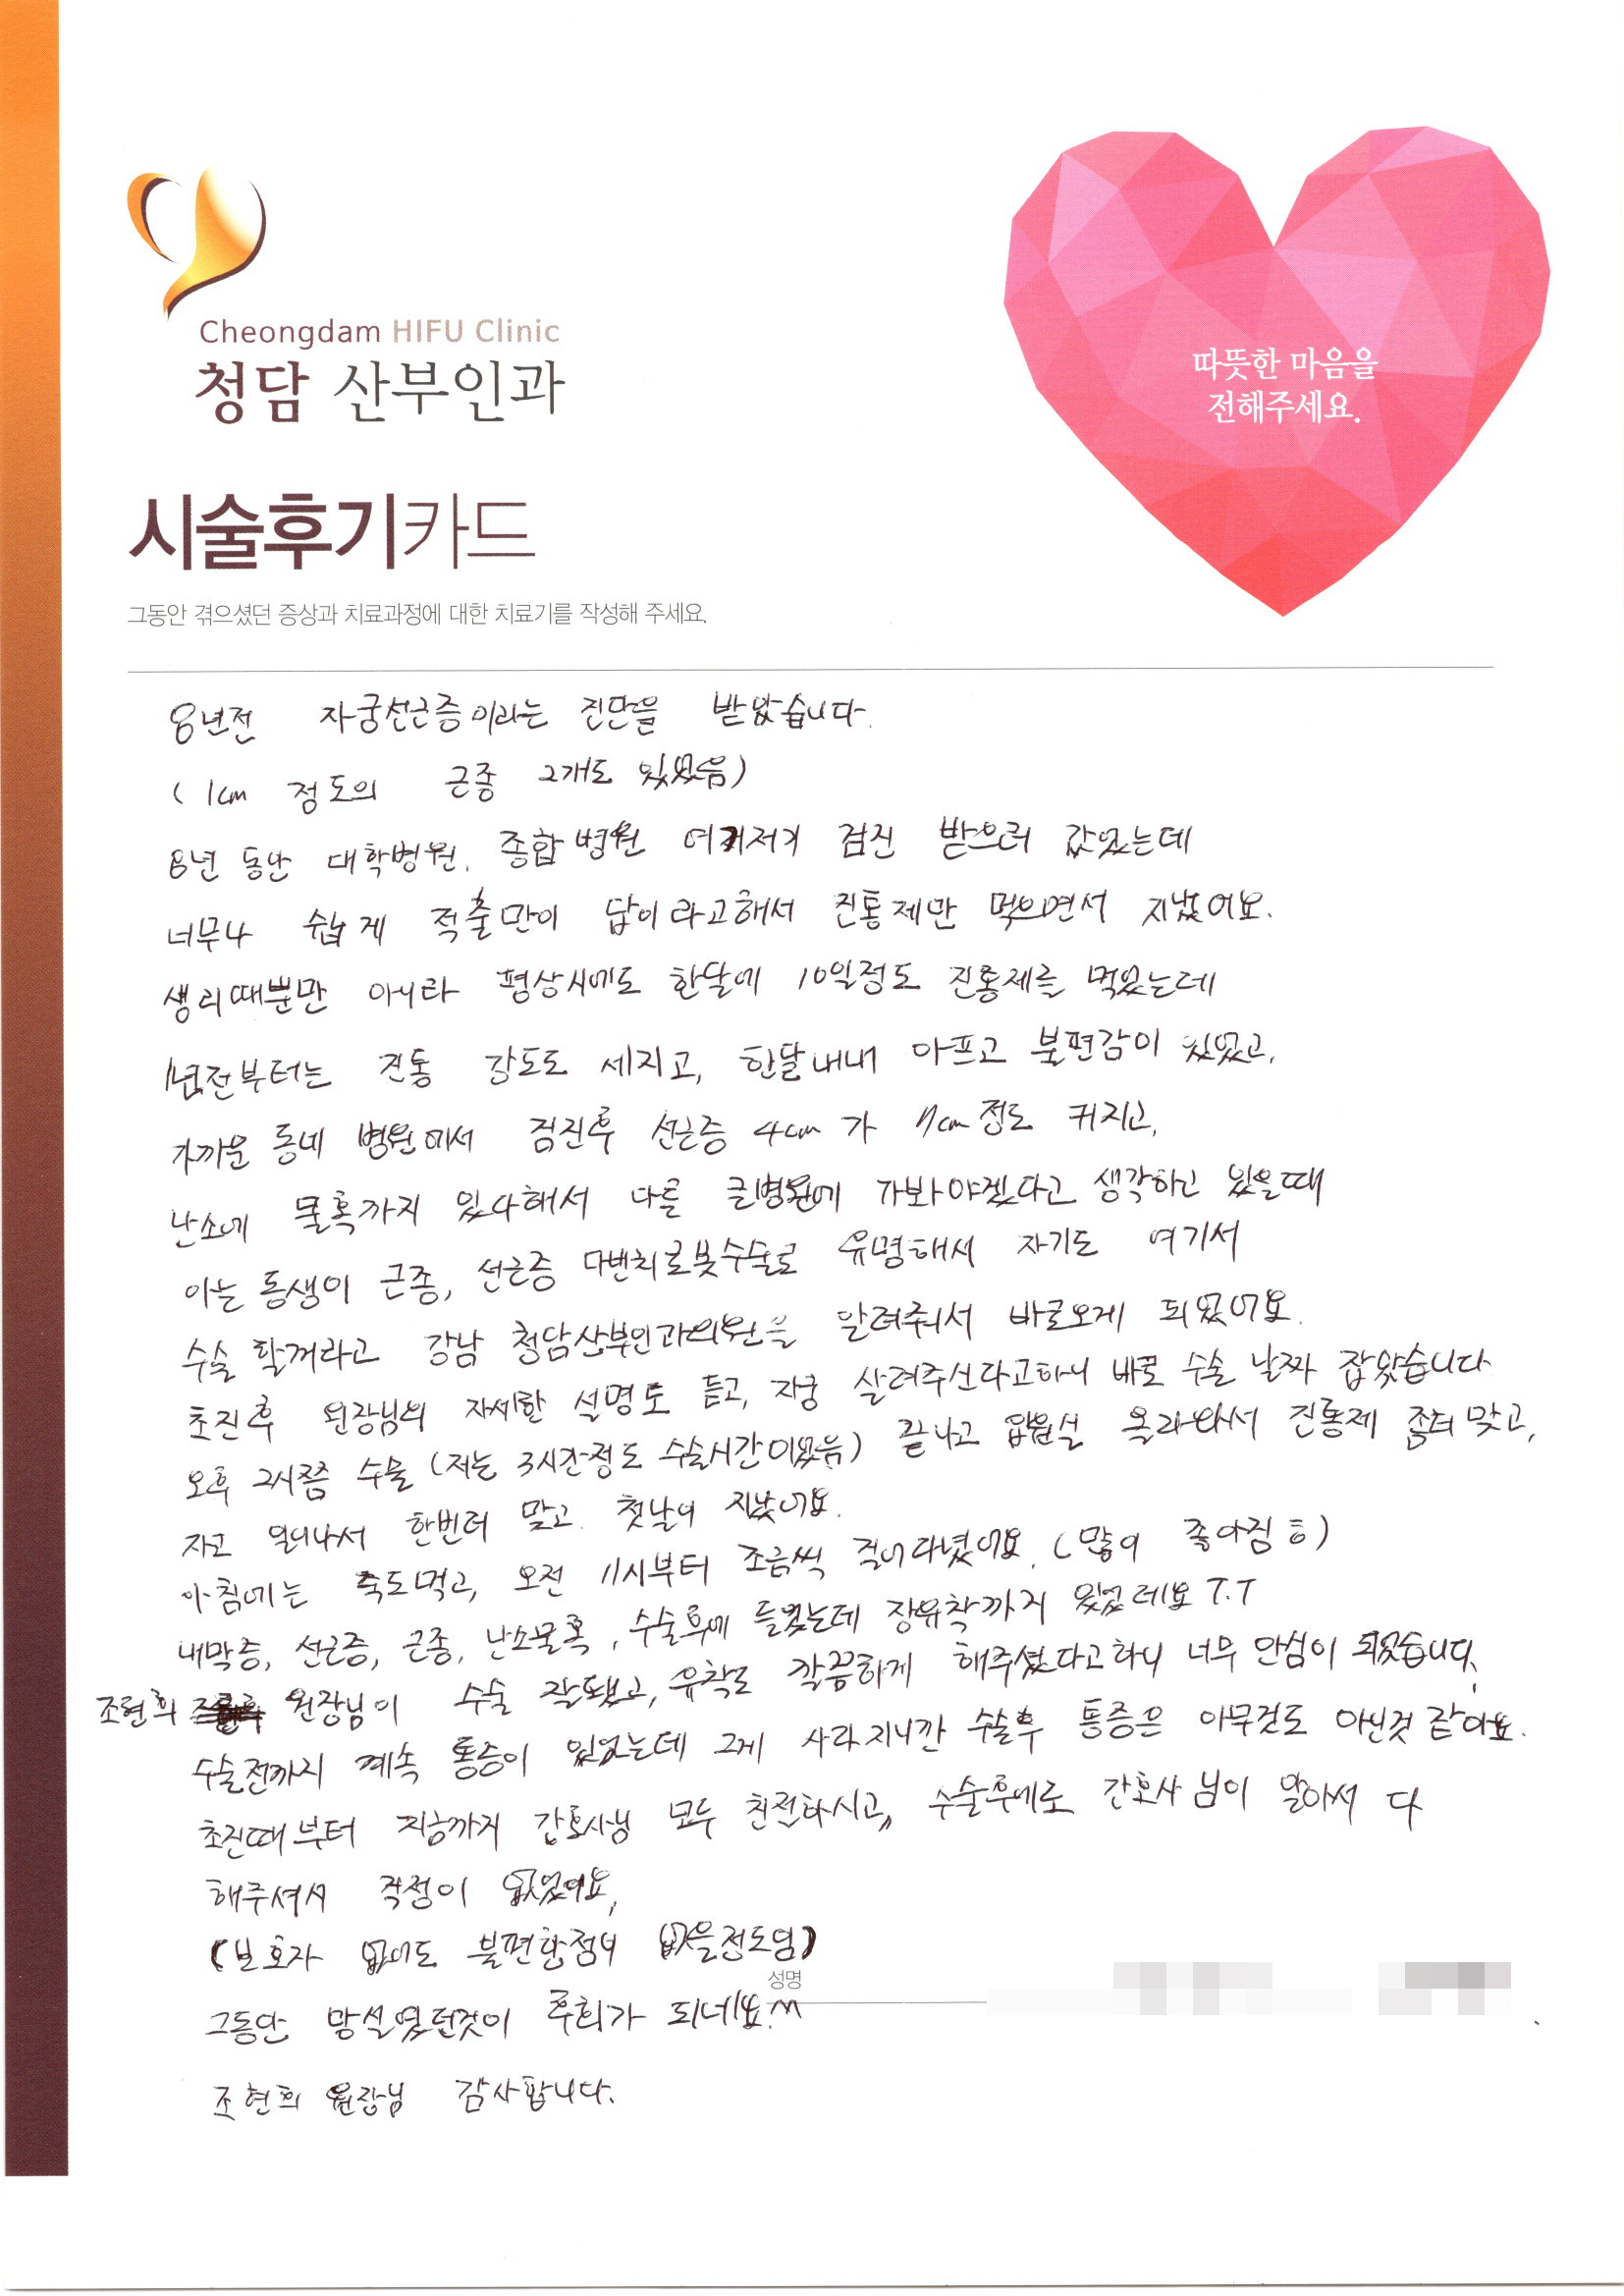 Cheongdam HIFU Clinic
청담 산부인과
따뜻한 마음을
전해주세요.
시술후기카드
그동안 겪으셨던 증상과 치료과정에 대한 치료기를 작성해 주세요.
8년전 자궁선근증이라는 진단을 받았습니다.
( 1cm 정도의 근종 2개도 있었음)
8년 동안 대학병원. 종합병원 여기저기 검진 받으러 갔었는데
너무나 쉽게 적출만이 답이라고해서 진통제만 먹으면서 지냈어요.
생리때뿐만 아니라 평상시에도 한달에 10일정도 진통제를 먹었는데
1년전부터는 진통 강도도 세지고, 한달내내 아프고 불편감이 있었고,
가까운 동네 병원에서 검진후 선근증 4cm가 7cm정도 커지고,
난소에 물혹까지 있다해서 다를 큰병원에 가봐야겠다고 생각하고 있을때
아는 동생이 근종, 선근증 다빈치로봇수술로 유명해서 자기도 여기서
수술 할꺼라고 강남 청담산부인과의원을 알려줘서 바로오게 되었어요.
초진후 원장님의 자세한 설명도 듣고, 자궁 살려주신다고하니 바로 수술 날짜 잡았습니다
오후 2시쯤 수술 (저는 3시간정도 수술시간이었음) 끝나고 입원실 올라와서 진통제 좀더 맞고,
자고 일어나서 한번더 맞고 첫날이 지났어요.
아침에는 죽도먹고, 오전 11시부터 조금씩 걸어다녔어요. (많이 좋아짐ㅎ)
내막증, 선근증, 근종, 난소물혹, 수술후에 들었는데 장유착까지 있었데요 T.T
조현희 원장님이 수술 잘됐고, 유착도 깔끔하게 해주셨다고하니 너무 안심이 되었습니다.
수술전까지 계속 통증이 있었는데 그게 사라지니깐 수술후 통증은 아무것도 아닌것 같아요.
초진때부터 지금까지 간호사님 모두 친절하시고, 수술후에도 간호사님이 알아서 다
해주셔서 걱정이 없었어요,
(보호자 없이도 불편한점이 없을정도임)
성명
그동안 망설였던것이 후회가 되네요.^^
조현희 원장님 감사합니다.